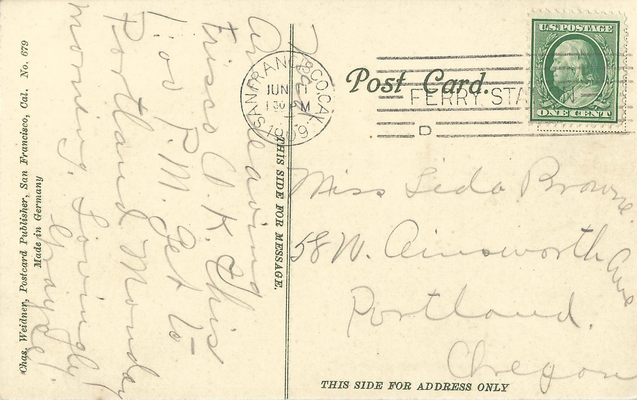 Chas. Weidner, Postcard Publisher, San Francisco, Cal. No. 679
Made in Germany
leaving
Frisco O.K. This
1:00 P.M. Get to
Portland Monday
morning. Lovingly
THIS SIDE FOR MESSAGE.
Post Card.
SAN FRANCISCO, CAL.
JUN 11
1 30 PM
1909
FERRY STA
D
U.S. POSTAGE
ONE CENT
Miss Lida Browne
58 W. Ainsworth Ave
Portland.
Oregon
THIS SIDE FOR ADDRESS ONLY